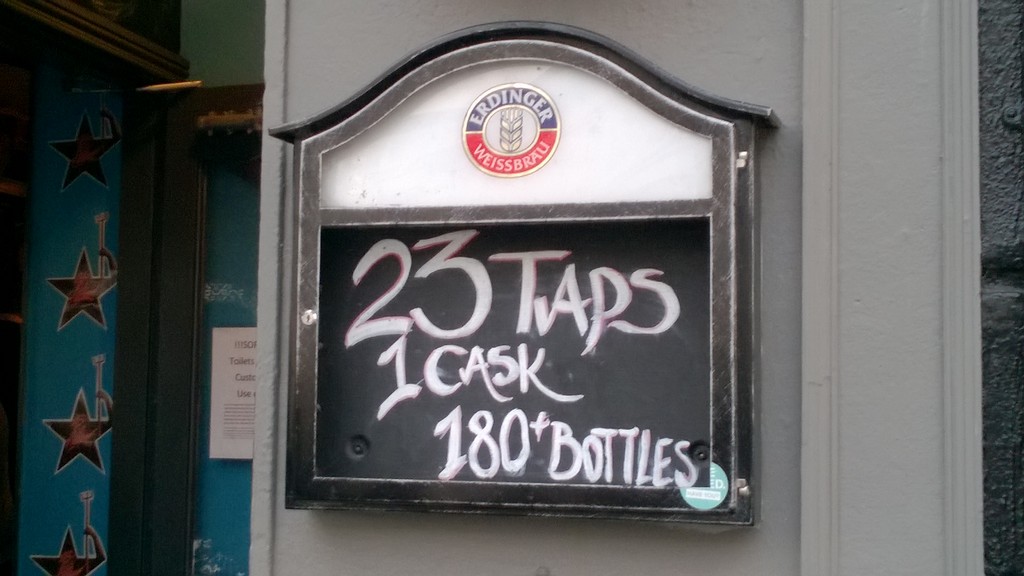 ERDINGER
WEISSBRÄU
23 TAPS
1 CASK
180+ BOTTLES
Toilets
Use